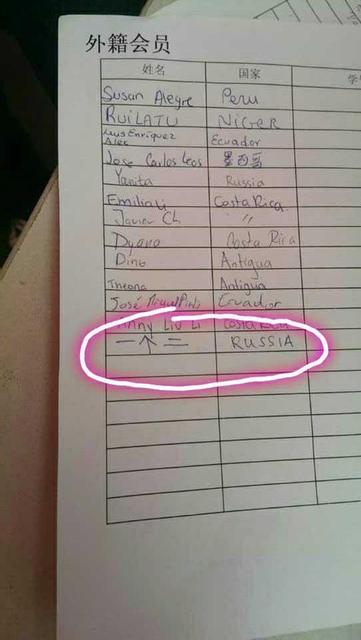 外籍会员
姓名 国家 学
Susan Alegre Peru
RUILATU NIGER
Luis Enriquez
Alex Ecuador
Jose Carlos Leos 墨西哥
Yanita Russia
Emilia Li Costa Rica
Javier Ch "
Dyana Costa Rica
Dino Antigua
Theona Antigua
José Ecuador
Anny Liu Li Costa Rica
一个二 RUSSIA